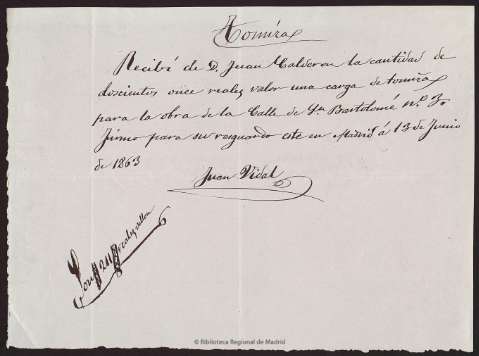 Tomiza
Recibí de D. Juan Calderon la cantidad de
doscientos once reales valor una carga de tomiza
para la obra de la Calle de Sn. Bartolomé n.º 3.
firmo para su resguardo este en Madrid á 13 de Junio
de 1863
Juan Vidal
Son 211 reales vellon
© Biblioteca Regional de Madrid